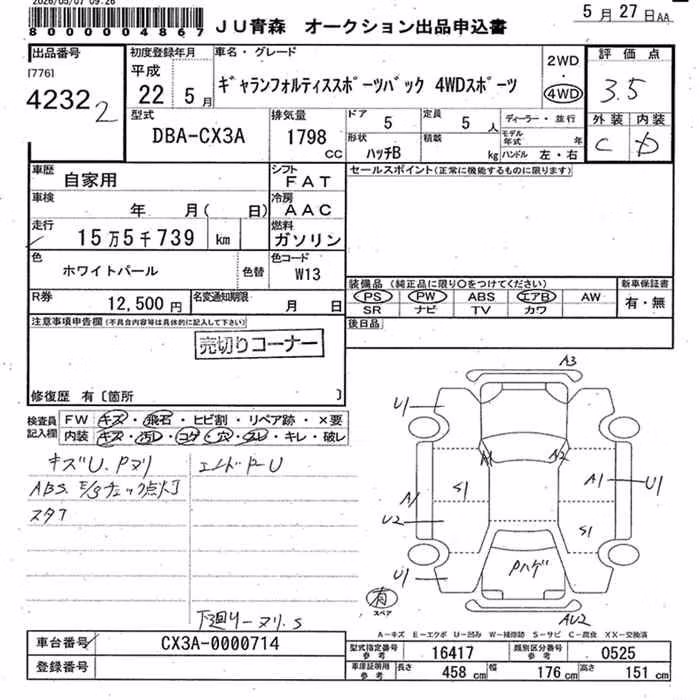 2026/05/07 09:26
8000004867
JU青森 オークション出品申込書
5月27日AA
出品番号
[776]
4232 2
初度登録年月
平成
22 5月
車名・グレード
ギャランフォルティススポーツバック 4WDスポーツ
2WD
・
4WD
評価点
3.5
外装 内装
C D
型式
DBA-CX3A
排気量
1798
CC
ドア
5
定員
5 人
形状
ハッチB
積載
kg
ディーラー・並行
モデル年式 年
ハンドル 左・右
車歴
自家用
シフト
FAT
車検
年 月( 日)
冷房
AAC
走行
15万5千739 km
燃料
ガソリン
色
ホワイトパール
色替
色コード
W13
セールスポイント(正常に機能するものに限ります)
R券
12,500円
名変通知期限
月 日
装備品 (純正品に限り○をつけてください)
PS PW ABS エアB AW
SR ナビ TV カワ
新車保証書
有・無
後日品
注意事項申告欄(不具合内容等は具体的に記入して下さい)
売切りコーナー
修復歴 有〔箇所 〕
検査員記入欄
FW キズ・飛石・ヒビ割・リペア跡・×要
内装 キズ・汚レ・コゲ・穴・スレ・キレ・破レ
キズU.Pヌリ
ABS. E/gチェック点灯
スタフ
エンドドーU
下廻リーヌリ.S
A3
U1
A1
A2
A1
U1
S1
A1
U2
S1
U1
Pハゲ
AU2
有
スペア
A-キズ E-エクボ U-凹み W-補修跡 S-サビ C-腐食 XX-交換済
車台番号
CX3A-0000714
登録番号
型式指定番号
参考
16417
類別区分番号
参考
0525
車庫証明用
参考
長さ 458 cm
幅 176 cm
高さ 151 cm